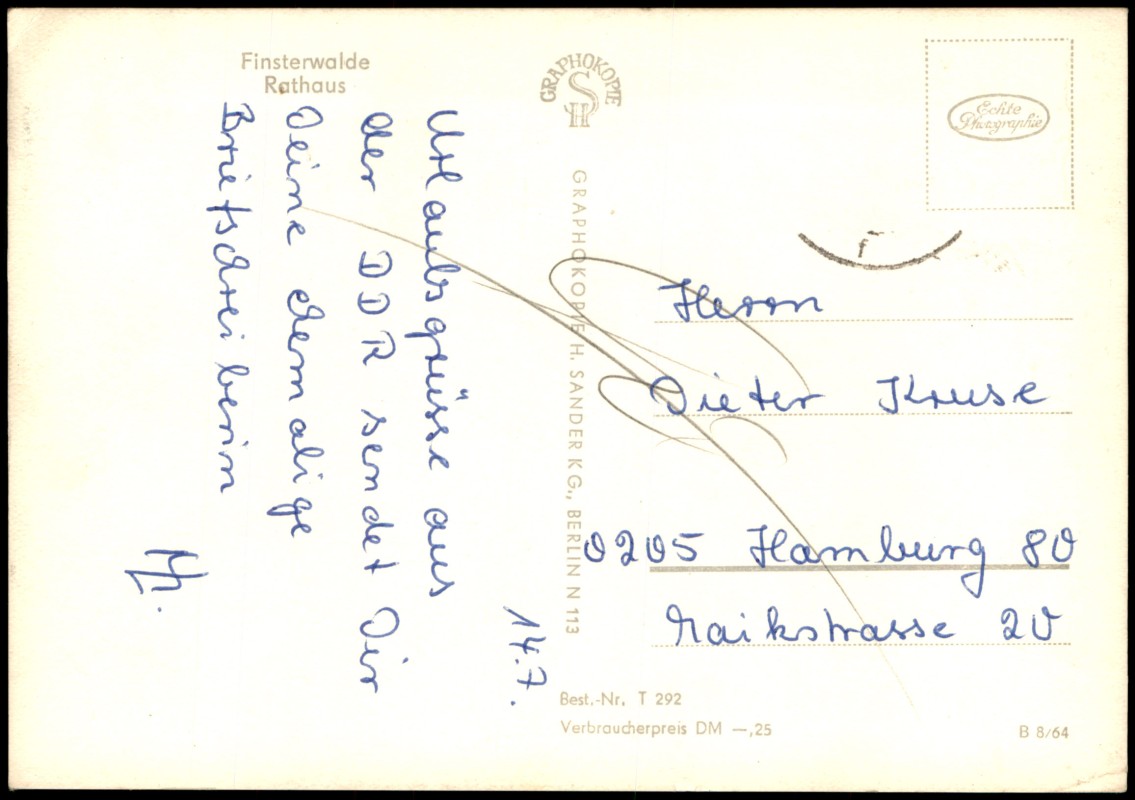 Finsterwalde
Rathaus
14.7.
Urlaubsgrüsse aus
der DDR sendet Dir
Deine ehemalige
Briefschreiberin
GRAPHOKOPIE
SH
GRAPHOKOPIE H. SANDER KG., BERLIN N 113
Echte
Photographie
Herrn
Dieter Kruse
0205 Hamburg 80
Maikstrasse 20
Best.-Nr. T 292
Verbraucherpreis DM —,25
B 8/64